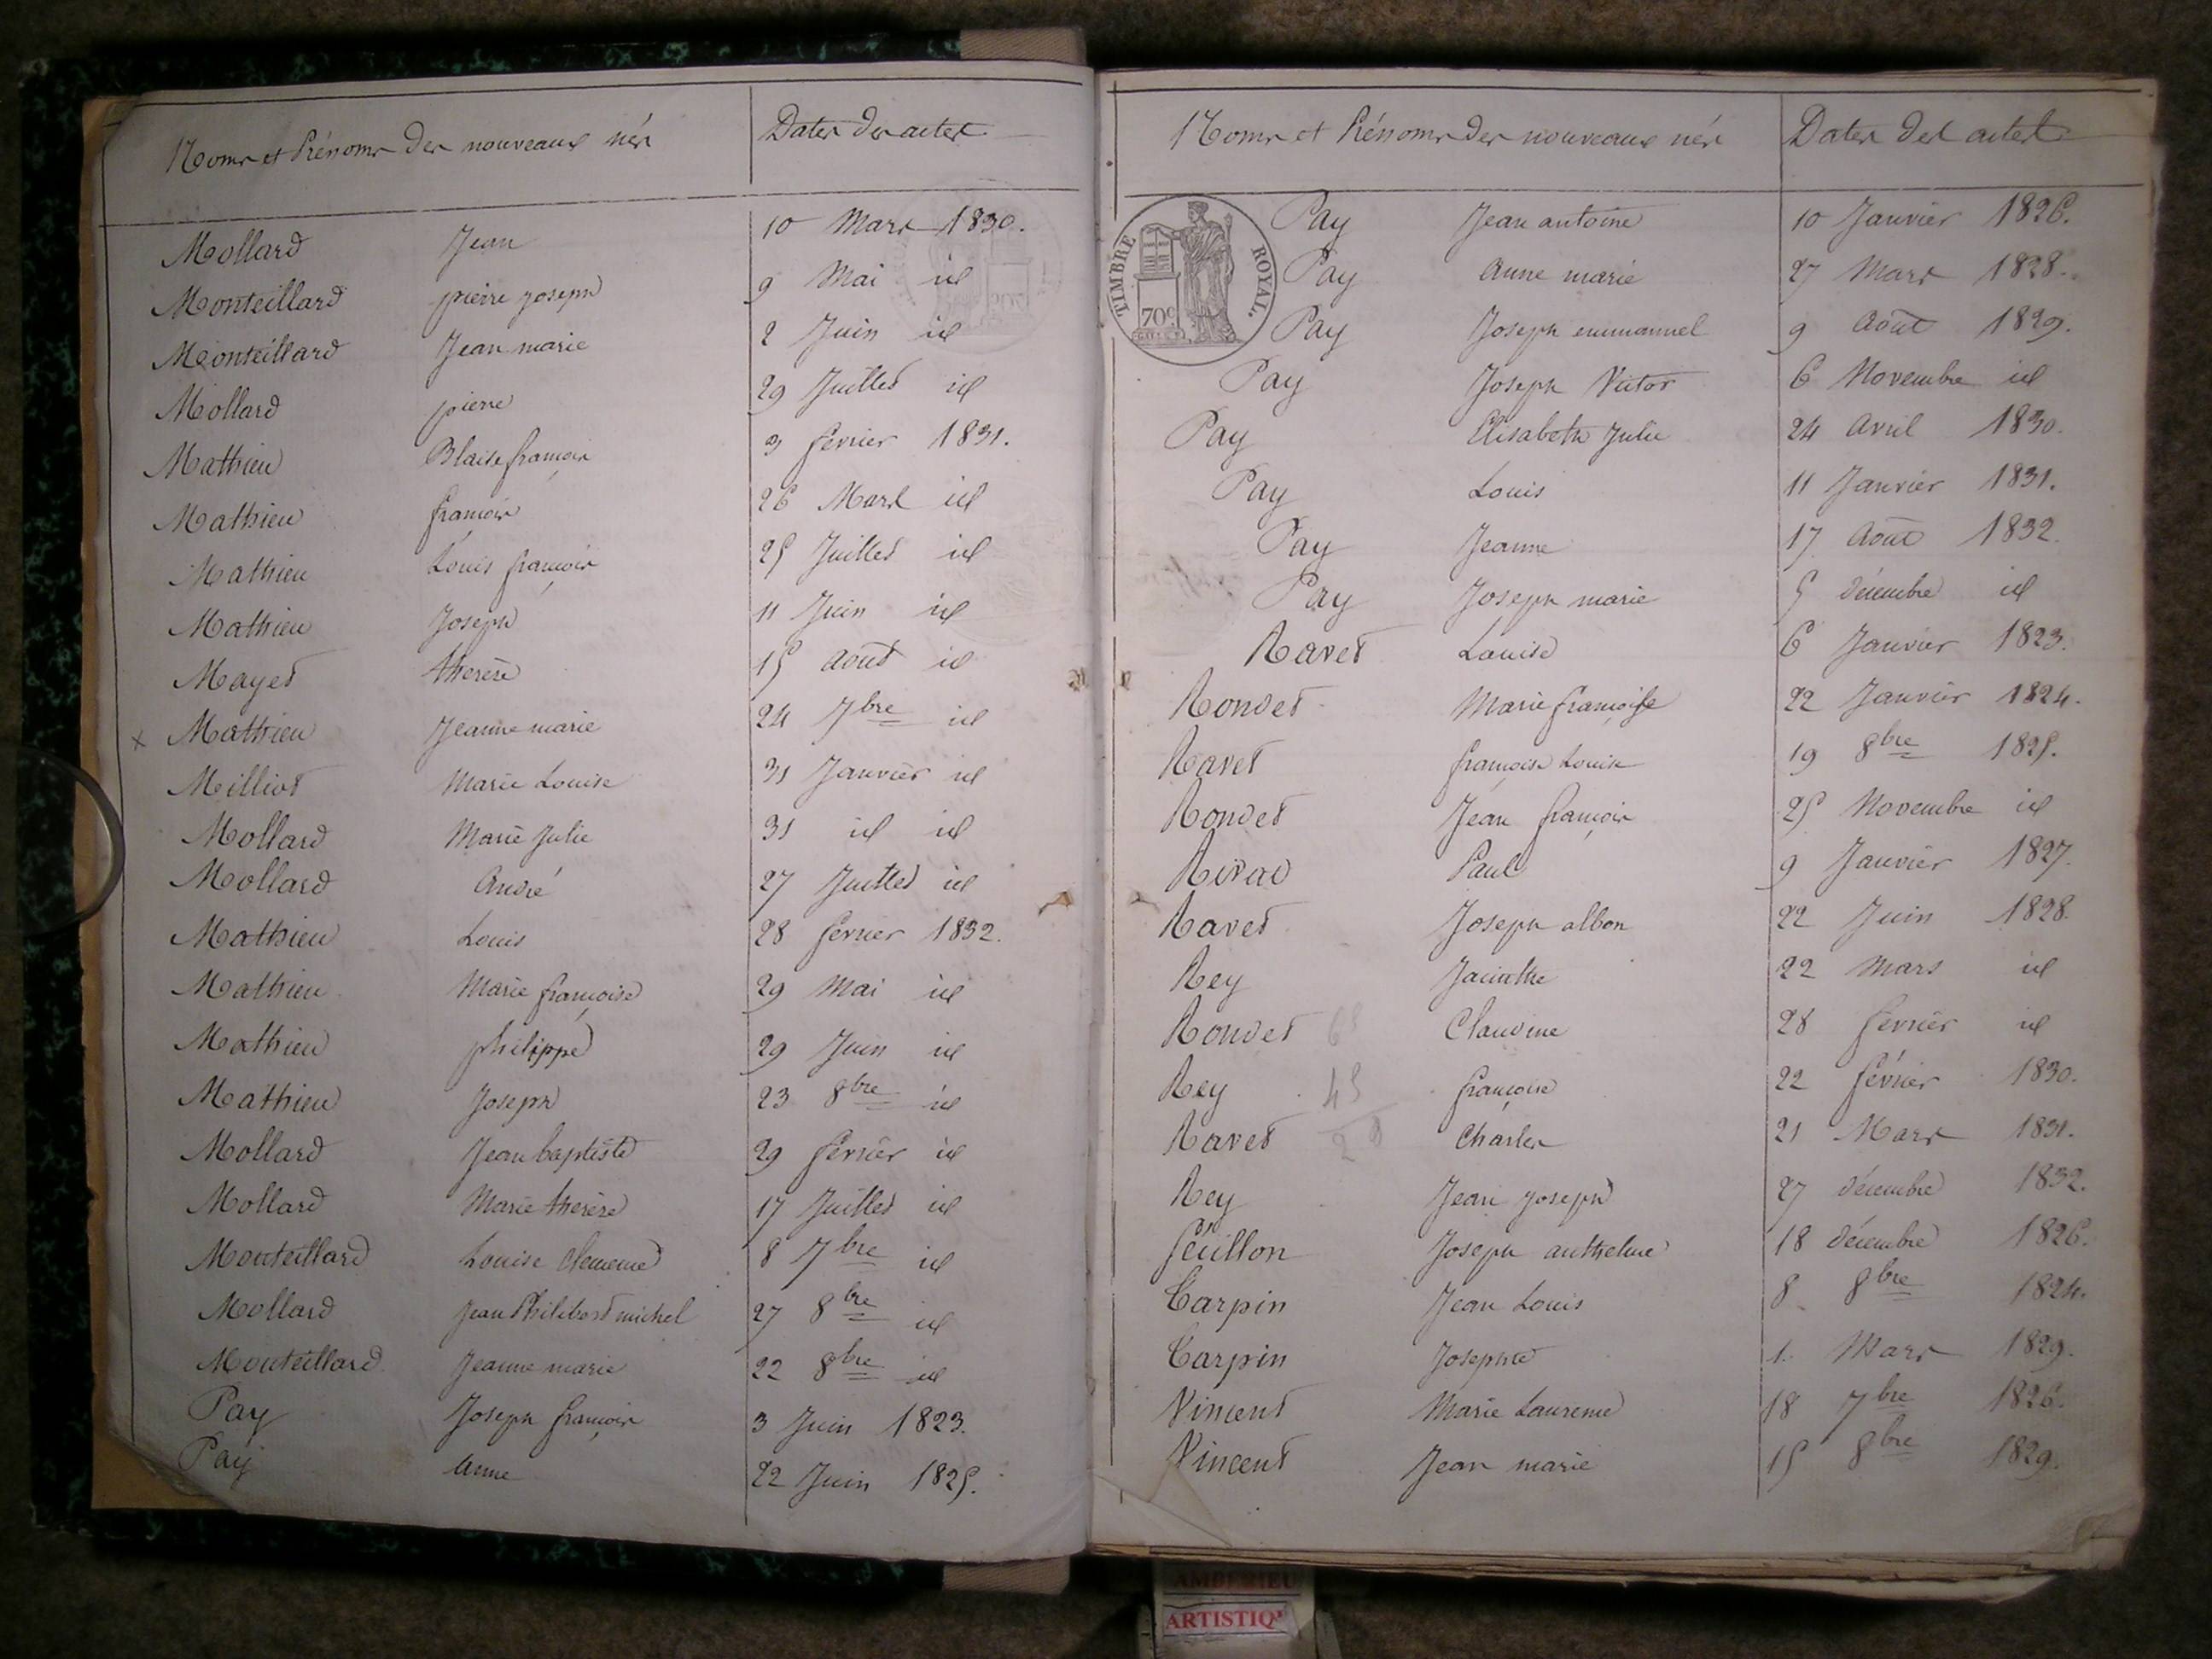 Noms et Prénoms des nouveaux nés Dates des actes
Mollard Jean 10 Mars 1830.
Monteillard pierre joseph 9 Mai id
Monteillard Jean marie 2 Juin id
Mollard pierre 29 Juillet id
Mathieu Blaise françois 3 fevrier 1831.
Mathieu françois 26 Mars id
Mathieu Louis françois 25 Juillet id
Mathieu Joseph 11 Juin id
Mayet therèse 15 Août id
x Mathieu Jeanne marie 24 7bre id
Milliot Marie Louise 31 Janvier id
Mollard Marie Julie 31 id id
Mollard André 27 Juillet id
Mathieu Louis 28 fevrier 1832.
Mathieu Marie françoise 29 Mai id
Mathieu philippe 29 Juin id
Mathieu Joseph 23 8bre id
Mollard Jean baptiste 29 fevrier id
Mollard Marie therèse 17 Juillet id
Monteillard Louise Clemence 8 7bre id
Mollard Jean Philibert michel 27 8bre id
Monteillard Jeanne marie 22 8bre id
Pay Joseph françois 3 Juin 1823.
Pay Anne 22 Juin 1825.
Noms et Prénoms des nouveaux nés Dates des actes
TIMBRE ROYAL.
70c
Pay Jean antoine 10 Janvier 1826.
Pay Anne marie 27 Mars 1828.
Pay Joseph emmanuel 9 Août 1829.
Pay Joseph Victor 6 Novembre id
Pay Elisabeth Julie 24 Avril 1830.
Pay Louis 11 Janvier 1831.
Pay Jeanne 17 Août 1832.
Pay Joseph marie 5 décembre id
Ravet Louise 6 Janvier 1823.
Rondet Marie françoise 22 Janvier 1824.
Ravet françoise Louise 19 8bre 1825.
Rondet Jean françois 25 Novembre id
Paul 9 Janvier 1827.
Ravet Joseph albon 22 Juin 1828.
Rey Jacinthe 22 Mars id
Rondet Claudine 28 fevrier id
Rey 45 françoise 22 février 1830.
Ravet Charles 21 Mars 1831.
Rey Jean joseph 27 décembre 1832.
feuillon Joseph anthelme 18 décembre 1826.
Carpin Jean Louis 8 8bre 1824.
Carpin Josephte 1. Mars 1829.
Vincent Marie Laurence 18 7bre 1826.
Vincent Jean marie 15 8bre 1829.
AMBERIEU
ARTISTIQ